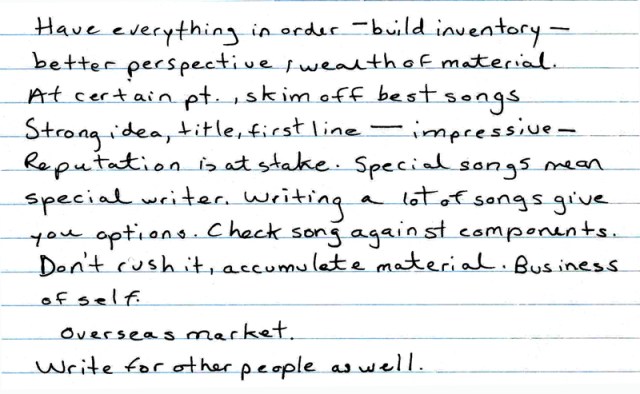 Have everything in order - build inventory -
better perspective, wealth of material.
At certain pt., skim off best songs
Strong idea, title, first line - impressive -
Reputation is at stake. Special songs mean
special writer. Writing a lot of songs give
you options. Check song against components.
Don't rush it, accumulate material. Business
of self.
Overseas market.
Write for other people as well.